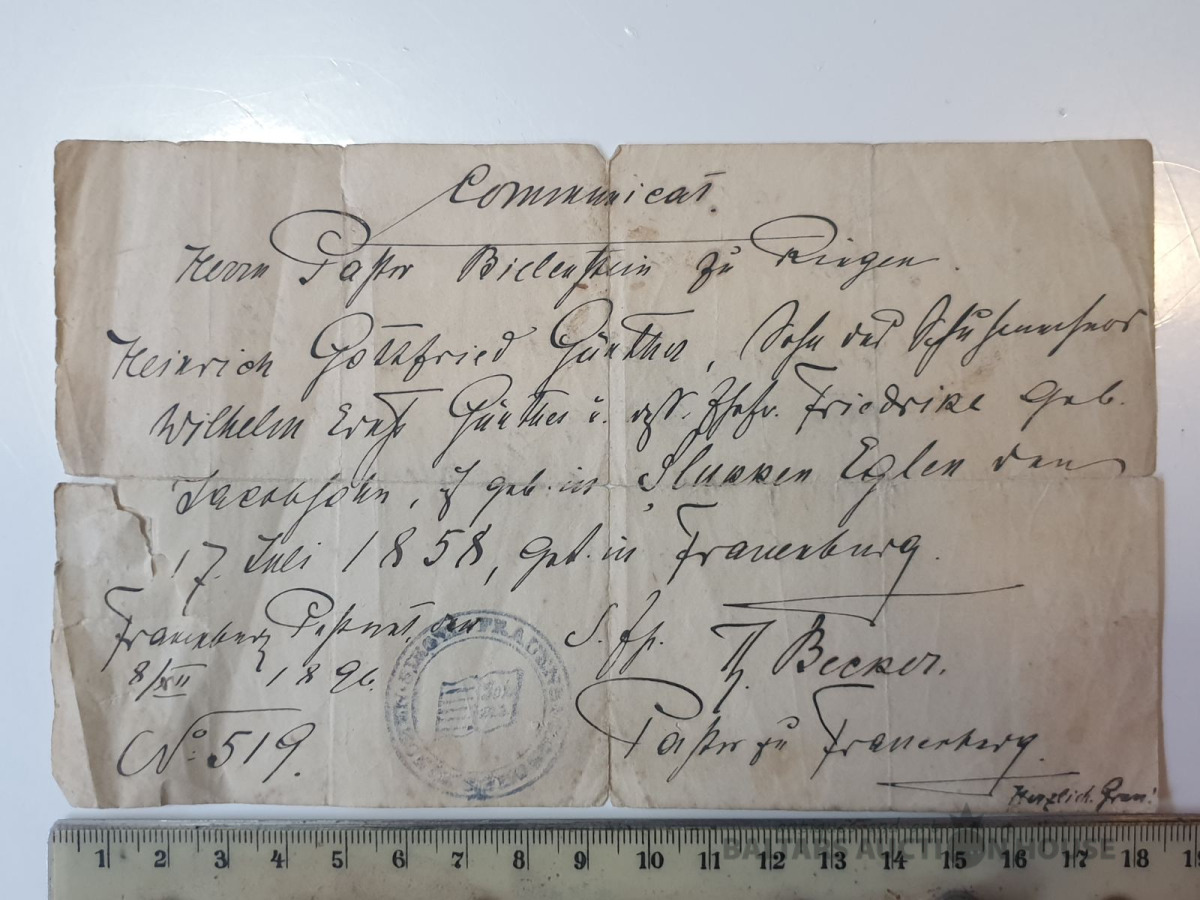 Communicat.
Herrn Pastor Bielenstein zu Ringen.
Heinrich Gottfried Günther, Sohn des
Wilhelm Ernst Günther u. dess. Ehefr. Friedrike geb.
Jacobsohn, ist geb. in Slukken Eglen den
17. Juli 1858, get. in Frauenburg.
Frauenburg Pastorat, den
8/XII 1896.
S. fp. Th. Becker.
No. 519.
Pastor zu Frauenburg.
Herzlich. Gruss!
1 2 3 4 5 6 7 8 9 10 11 12 13 14 15 16 17 18
BALTARS AUCTION HOUSE